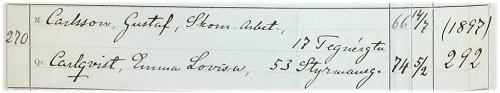 M. Carlsson, Gustaf, Skom. arbet., 66 14/7 (1897)
270 17 Tegnérgtn
Qv. Carlqvist, Emma Lovisa, 53 Styrmansg. 74 5/2 292